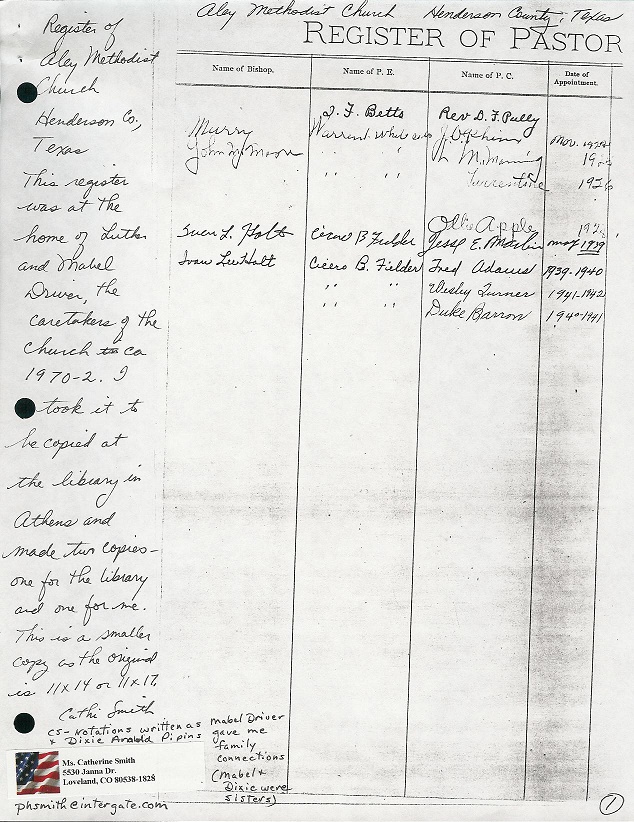 Aley Methodist Church Henderson County, Texas
REGISTER OF PASTOR
Register of
Aley Methodist
Church
Henderson Co.,
Texas
This register
was at the
home of Luther
and Mabel
Driver, the
caretakers of the
Church ca
1970-2. I
took it to
be copied at
the library in
Athens and
made two copies-
one for the library
and one for me.
This is a smaller
copy as the original
is 11x14 or 11x17.
Cathi Smith
CS-Notations written as
+ Dixie Arnold Pipins
Mabel Driver
gave me
family
connections
(Mabel +
Dixie were
sisters)
Ms. Catherine Smith
5530 Janna Dr.
Loveland, CO 80538-1828
phsmith@intergate.com
Name of Bishop. Name of P. E. Name of P. C. Date of Appointment.
J. F. Betts Rev D. F. Pully
Murry Nov. 1924
John M. Moore " M. Manning
" " Turrentine 1926
Ollie Apple
Ivan L. Holt Cicero B Fielder Jesse E. Martin 1939
Ivan Lee Holt Cicero B. Fielder Fred Adams 1939-1940
" " Wesley Turner 1941-1942
" " Duke Barron 1940-1941
1